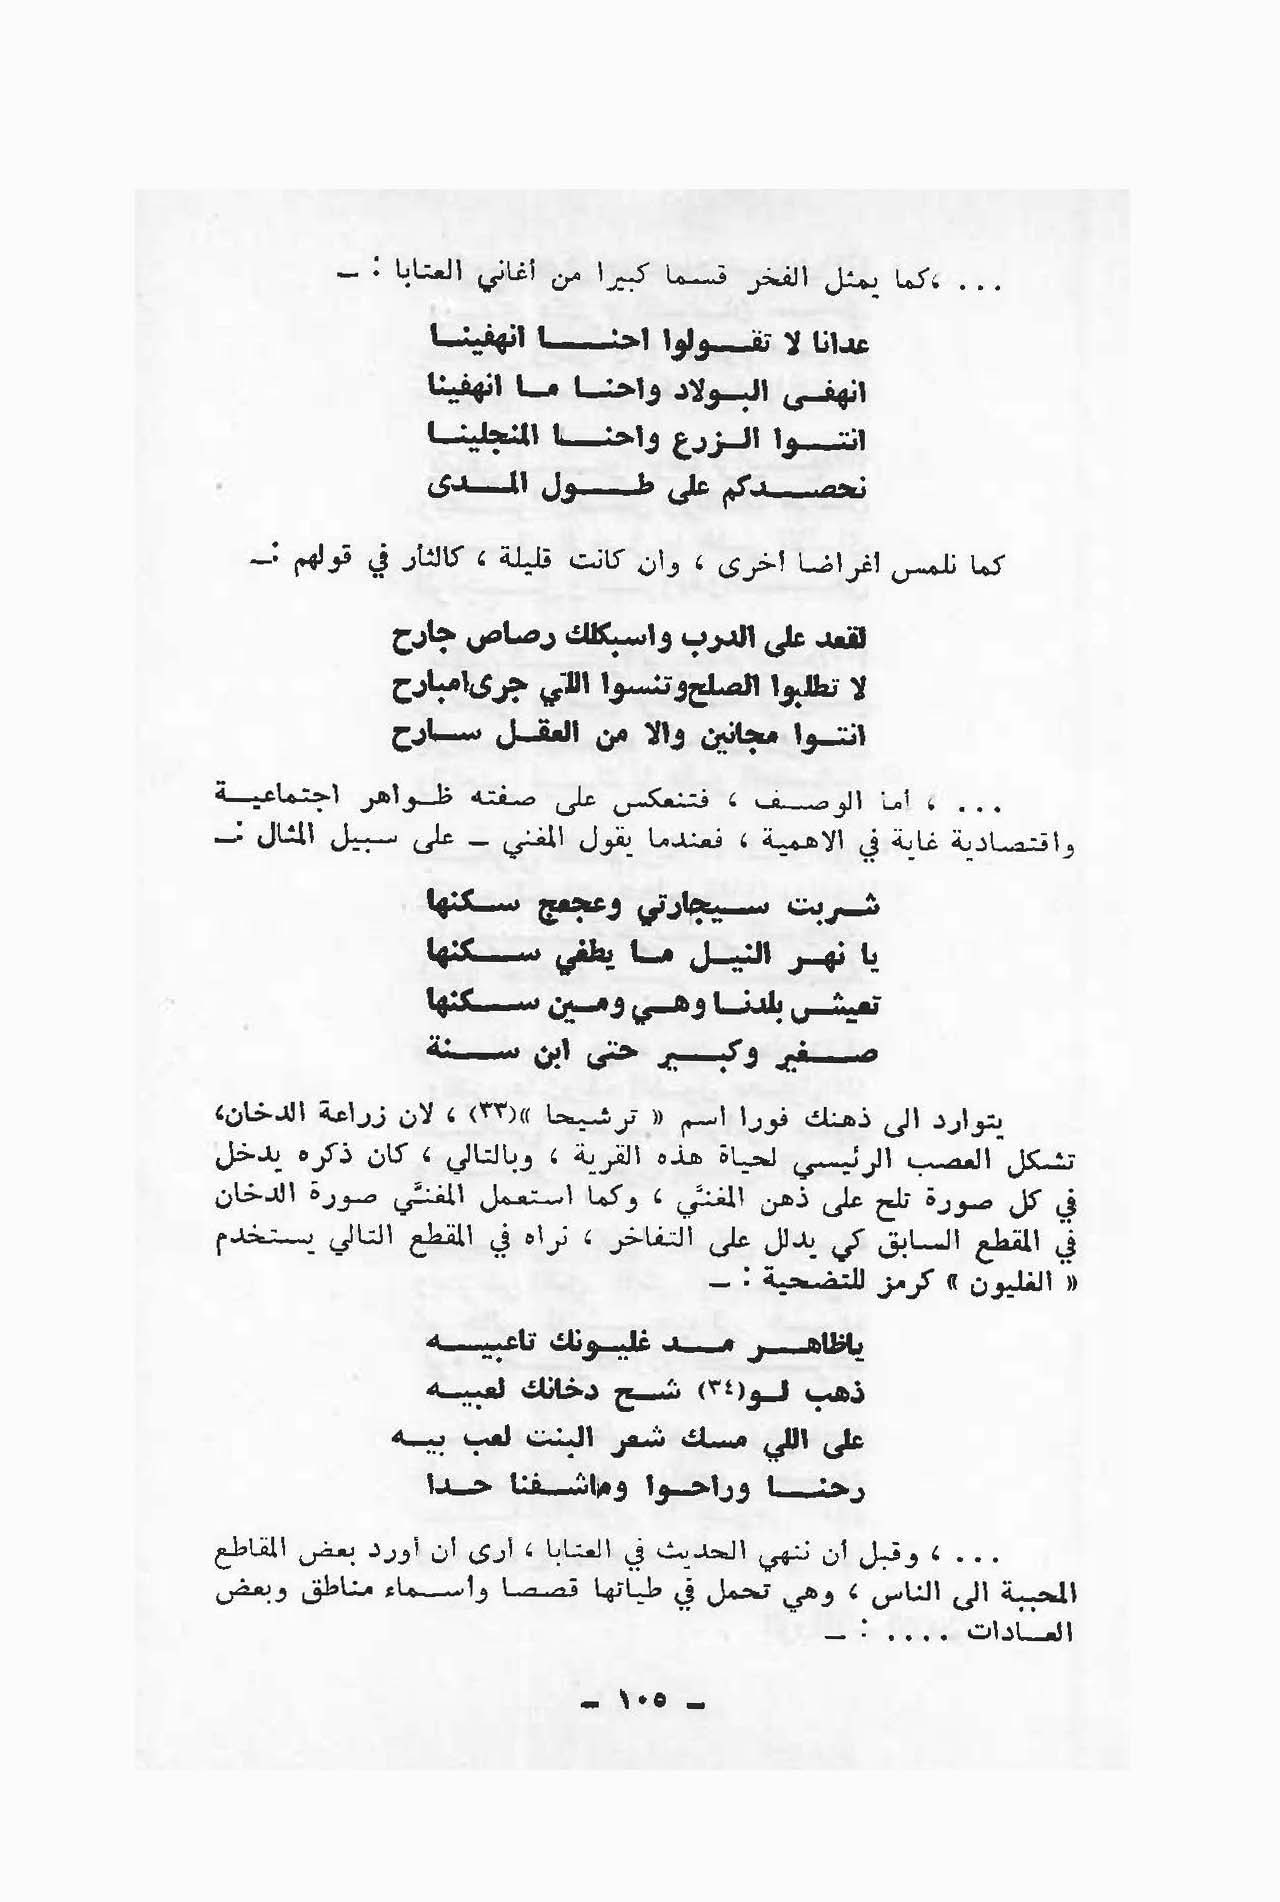 ... ،كما يمثل الفخر قسما كبيرا من أغاني العتابا : ــ
عدانا لا تقولوا احنا انهفينا
انهفى البولاد واحنا ما انهفينا
انتوا الزرع واحنا المنجلينا
نحصدكم على طول المدى
كما نلمس أغراضا أخرى ، وان كانت قليلة ، كالثأر في قولهم :ــ
لقعد على الدرب واسبكلك رصاص جارح
لا تطلبوا الصلح وتنسوا اللآي جرى امبارح
انتوا مجانين والا من العقل سارح
... ، أما الوصف ، فتنعكس على صفته ظواهر اجتماعية
واقتصادية غاية في الاهمية ، فعندما يقول المغني ــ على سبيل المثال :ــ
شربت سيجارتي وعجعج سكنها
يا نهر النيل ما يطفي سكنها
تعيش بلدنا وهي ومين سكنها
صغير وكبير حتى ابن سنة
يتوارد الى ذهنك فورا اسم « ترشيحا »(٣٣) ، لان زراعة الدخان،
تشكل العصب الرئيسي لحياة هذه القرية ، وبالتالي ، كان ذكره يدخل
في كل صورة تلح على ذهن المغنَّي ، وكما استعمل المغنَّي صورة الدخان
في المقطع السابق كي يدلل على التفاخر ، نراه في المقطع التالي يستخدم
« الغليون » كرمز للتضحية : ــ
ياظاهر مد غليونك تاعبيه
ذهب لو(٣٤) شح دخانك لعبيه
على اللي مسك شعر البنت لعب بيه
رحنا وراحوا وماشفنا حدا
... ، وقبل أن ننهي الحديث في العتابا ، أرى أن أورد بعض المقاطع
المحببة الى الناس ، وهي تحمل في طياتها قصصا وأسماء مناطق وبعض
العادات .... : ــ
ــ ١٠٥ ــ